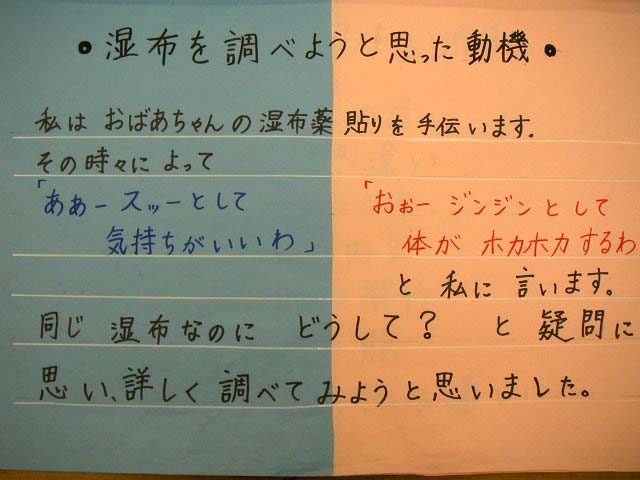 • 湿布を調べようと思った動機 •
私は おばあちゃんの湿布薬貼りを手伝います.
その時々によって
「ああースッーとして 「おぉー ジンジンとして
気持ちがいいわ」 体が ホカホカするわ
と 私に 言います。
同じ 湿布なのに どうして? と 疑問に
思い、詳しく調べてみようと思いました。